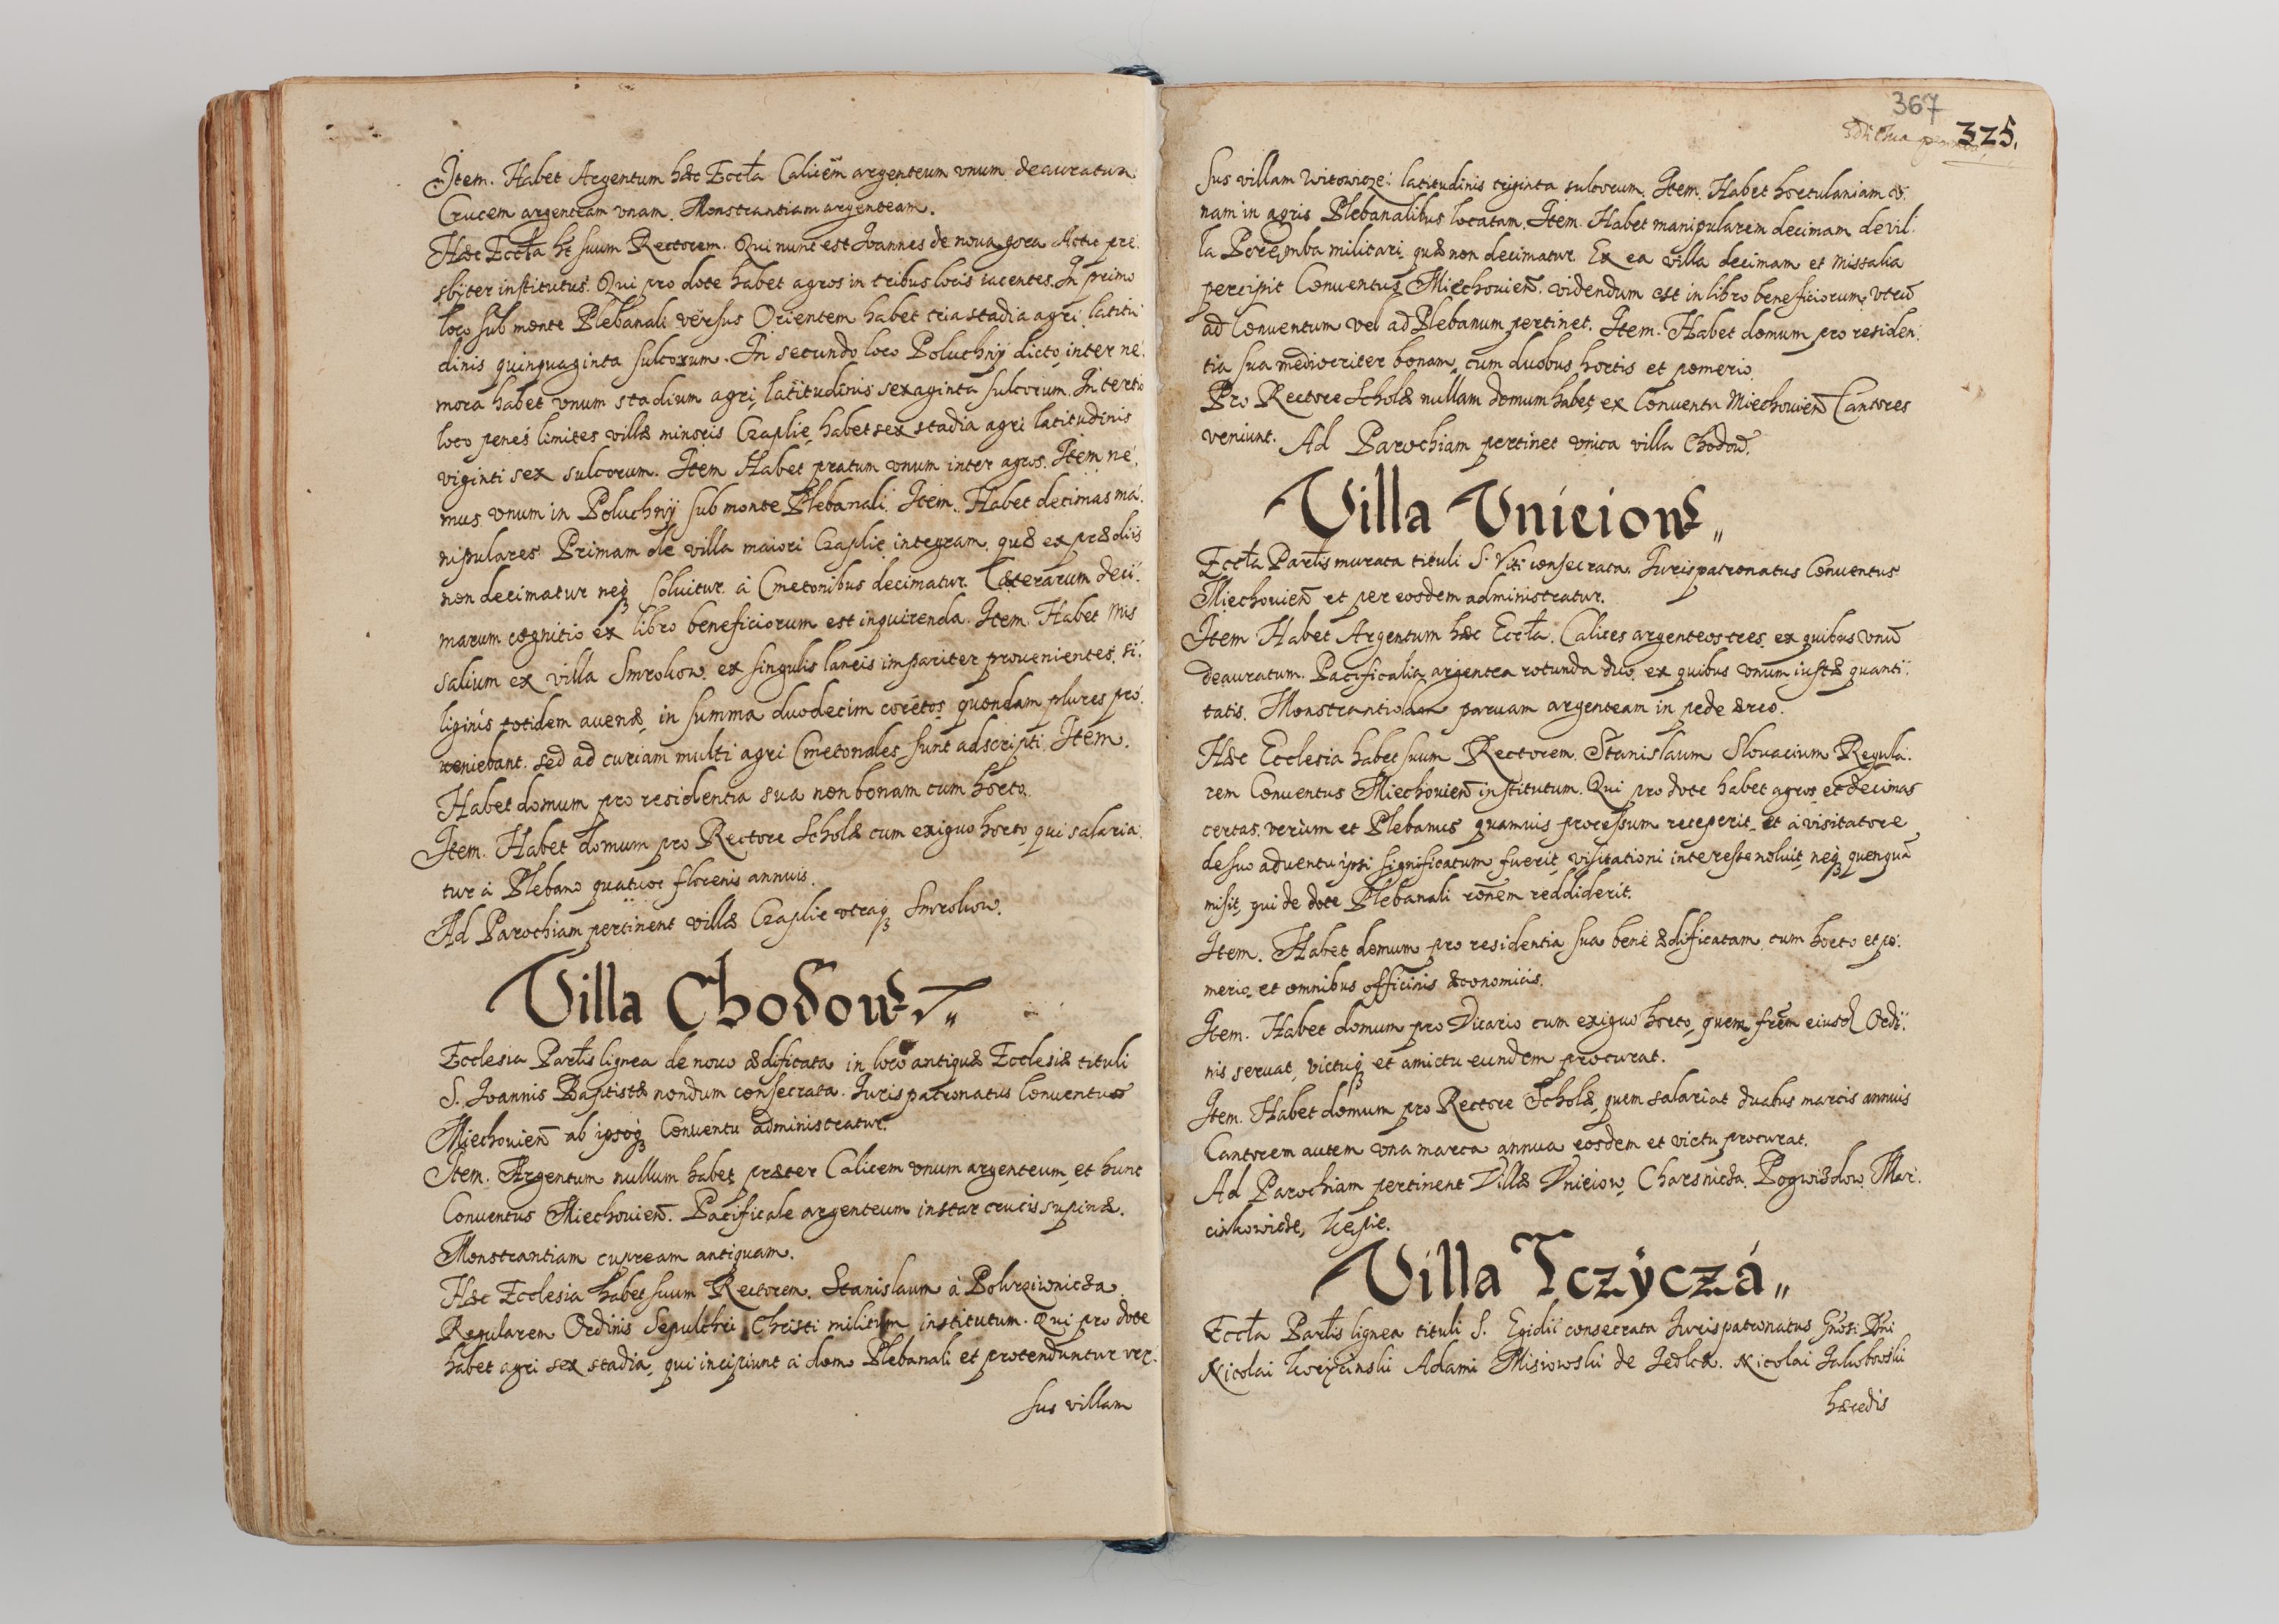 Item. Habet Argentum hæc Eccła Calicem argenteum vnum deauratum
Crucem argenteam vnam. Monstrantiam argenteam.
Hæc Eccła ht suum Rectorem. Qui nunc est Joannes de noua gora Actu pre
sbÿter institutus. Qui pro dote habet agros in tribus locis iacentes. In primo
loco sub monte Plebanali versus Orientem habet tria stadia agri latitu
dinis quinquaginta sulcorum. In secundo loco Poluchnÿ dicto inter ne
mora habet vnum stadium agri, latitudinis sexaginta sulcorum. In tertio
loco penes limites villæ minoris Czaplie, habet sex stadia agri latitudinis
viginti sex sulcorum. Item Habet pratum vnum inter agros. Item ne
mus vnum in Poluchnÿ sub monte Plebanali. Item. Habet decimas ma
nipulares Primam de villa maiori Czaplie integram, quæ ex prædiis
non decimatur neq soluitur. à Cmetonibus decimatur. Cæterarum deci
marum cognitio ex libro beneficiorum est inquirenda. Item. Habet Mis
salium ex villa Smrokow. ex singulis laneis impariter prouenientes. si
liginis totidem auenæ, in summa duodecim coretos quondam plures pro
ueniebant. sed ad curiam multi agri Cmetonales sunt adscripti. Item.
Habet domum pro residentia sua non bonam cum horto.
Item. Habet domum pro Rectore Scholæ cum exiguo horto, qui salaria
tur à Plebano quatuor florenis annuis.
Ad Parochiam pertinent villæ Czaplie vtraq Smrokow.
Villa Chodow
Ecclesia Partis lignea de nouo ædificata in loco antiquæ Ecclesiæ tituli
S. Joannis Baptistæ nondum consecrata. Juris patronatus Conuentus
Miechouien ab ipsoq Conuentu administratur.
Item. Argentum nullum habet præter Calicem vnum argenteum, et hunc
Conuentus Miechouien. Pacificale argenteum instar crucis supinæ.
Monstrantiam cupream antiquam.
Hæc Ecclesia habet suum Rectorem. Stanislaum à
Regularem Ordinis Sepulchri Christi militum institutum. Qui pro dote
habet agri sex stadia, qui incipiunt à domo Plebanali et protenduntur ver
sus villam
367
325.
sus villam Witowicze: latitudinis triginta sulcorum. Item. Habet hortulaniam v
nam in agris Plebanalibus locatam. Item. Habet manipularem decimam de vil
la Poremba militari, quæ non decimatur. Ex ea villa decimam et missalia
percipit Conuentus Miechouien. videndum est in libro beneficiorum, vtrū
ad Conuentum vel ad Plebanum pertinet. Item. Habet domum pro residen
tia sua mediocriter bonam, cum duobus hortis et pomerio.
Pro Rectore Scholæ nullam domum habet, ex Conuentu Miechouien Cantores
veniunt. Ad Parochiam pertinet vnica villa Chodow.
Villa Vnieiow
Eccła Partis murata tituli S. Viti consecrata. Juris patronatus Conuentus
Miechouien et per eosdem administratur.
Item Habet Argentum hæc Eccła. Calices argenteos tres, ex quibus vnū
deauratum. Pacificalia argentea rotunda duo, ex quibus vnum iustæ quanti
tatis. paruam argenteam in pede æreo.
Hæc Ecclesia habet suum Rectorem. Stanislaum Slouacium Regula
rem Conuentus Miechouien institutum. Qui pro dote habet agros et decimas
certas. verùm et Plebanus quamuis processum receperit et à visitatore
de suo aduentu ipsi significatum fuerit, visitationi interesse noluit, neq quenquā
misit, qui de dote Plebanali ronem reddiderit.
Item. Habet domum pro residentia sua benè ædificatam, cum horto et po
merio, et omnibus officinis æconomicis.
Item. Habet domum pro Vicario cum exiguo horto, quem frem eiusd Ordi
nis seruat, victuq et amictu eundem procurat.
Item. Habet domum pro Rectore Scholæ, quem salariat duabus marcis annuis
Cantorem autem vna marca annua eosdem et victu procurat.
Ad Parochiam pertinent Villæ Vnieiow, Charsnicza, Pogwizdow, Mar
cinkowicze,
Villa Tczÿczá
Eccła Partis lignea tituli S. Egidii consecrata Juris patronatus Gnosi Dni
Nicolai Adami Misiowski de Jedlcza. Nicolai Jakubowski
hæredis